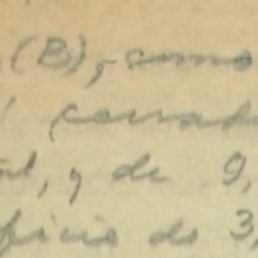 (B), como
cerrad
al, y de 9,
ficio de 3,